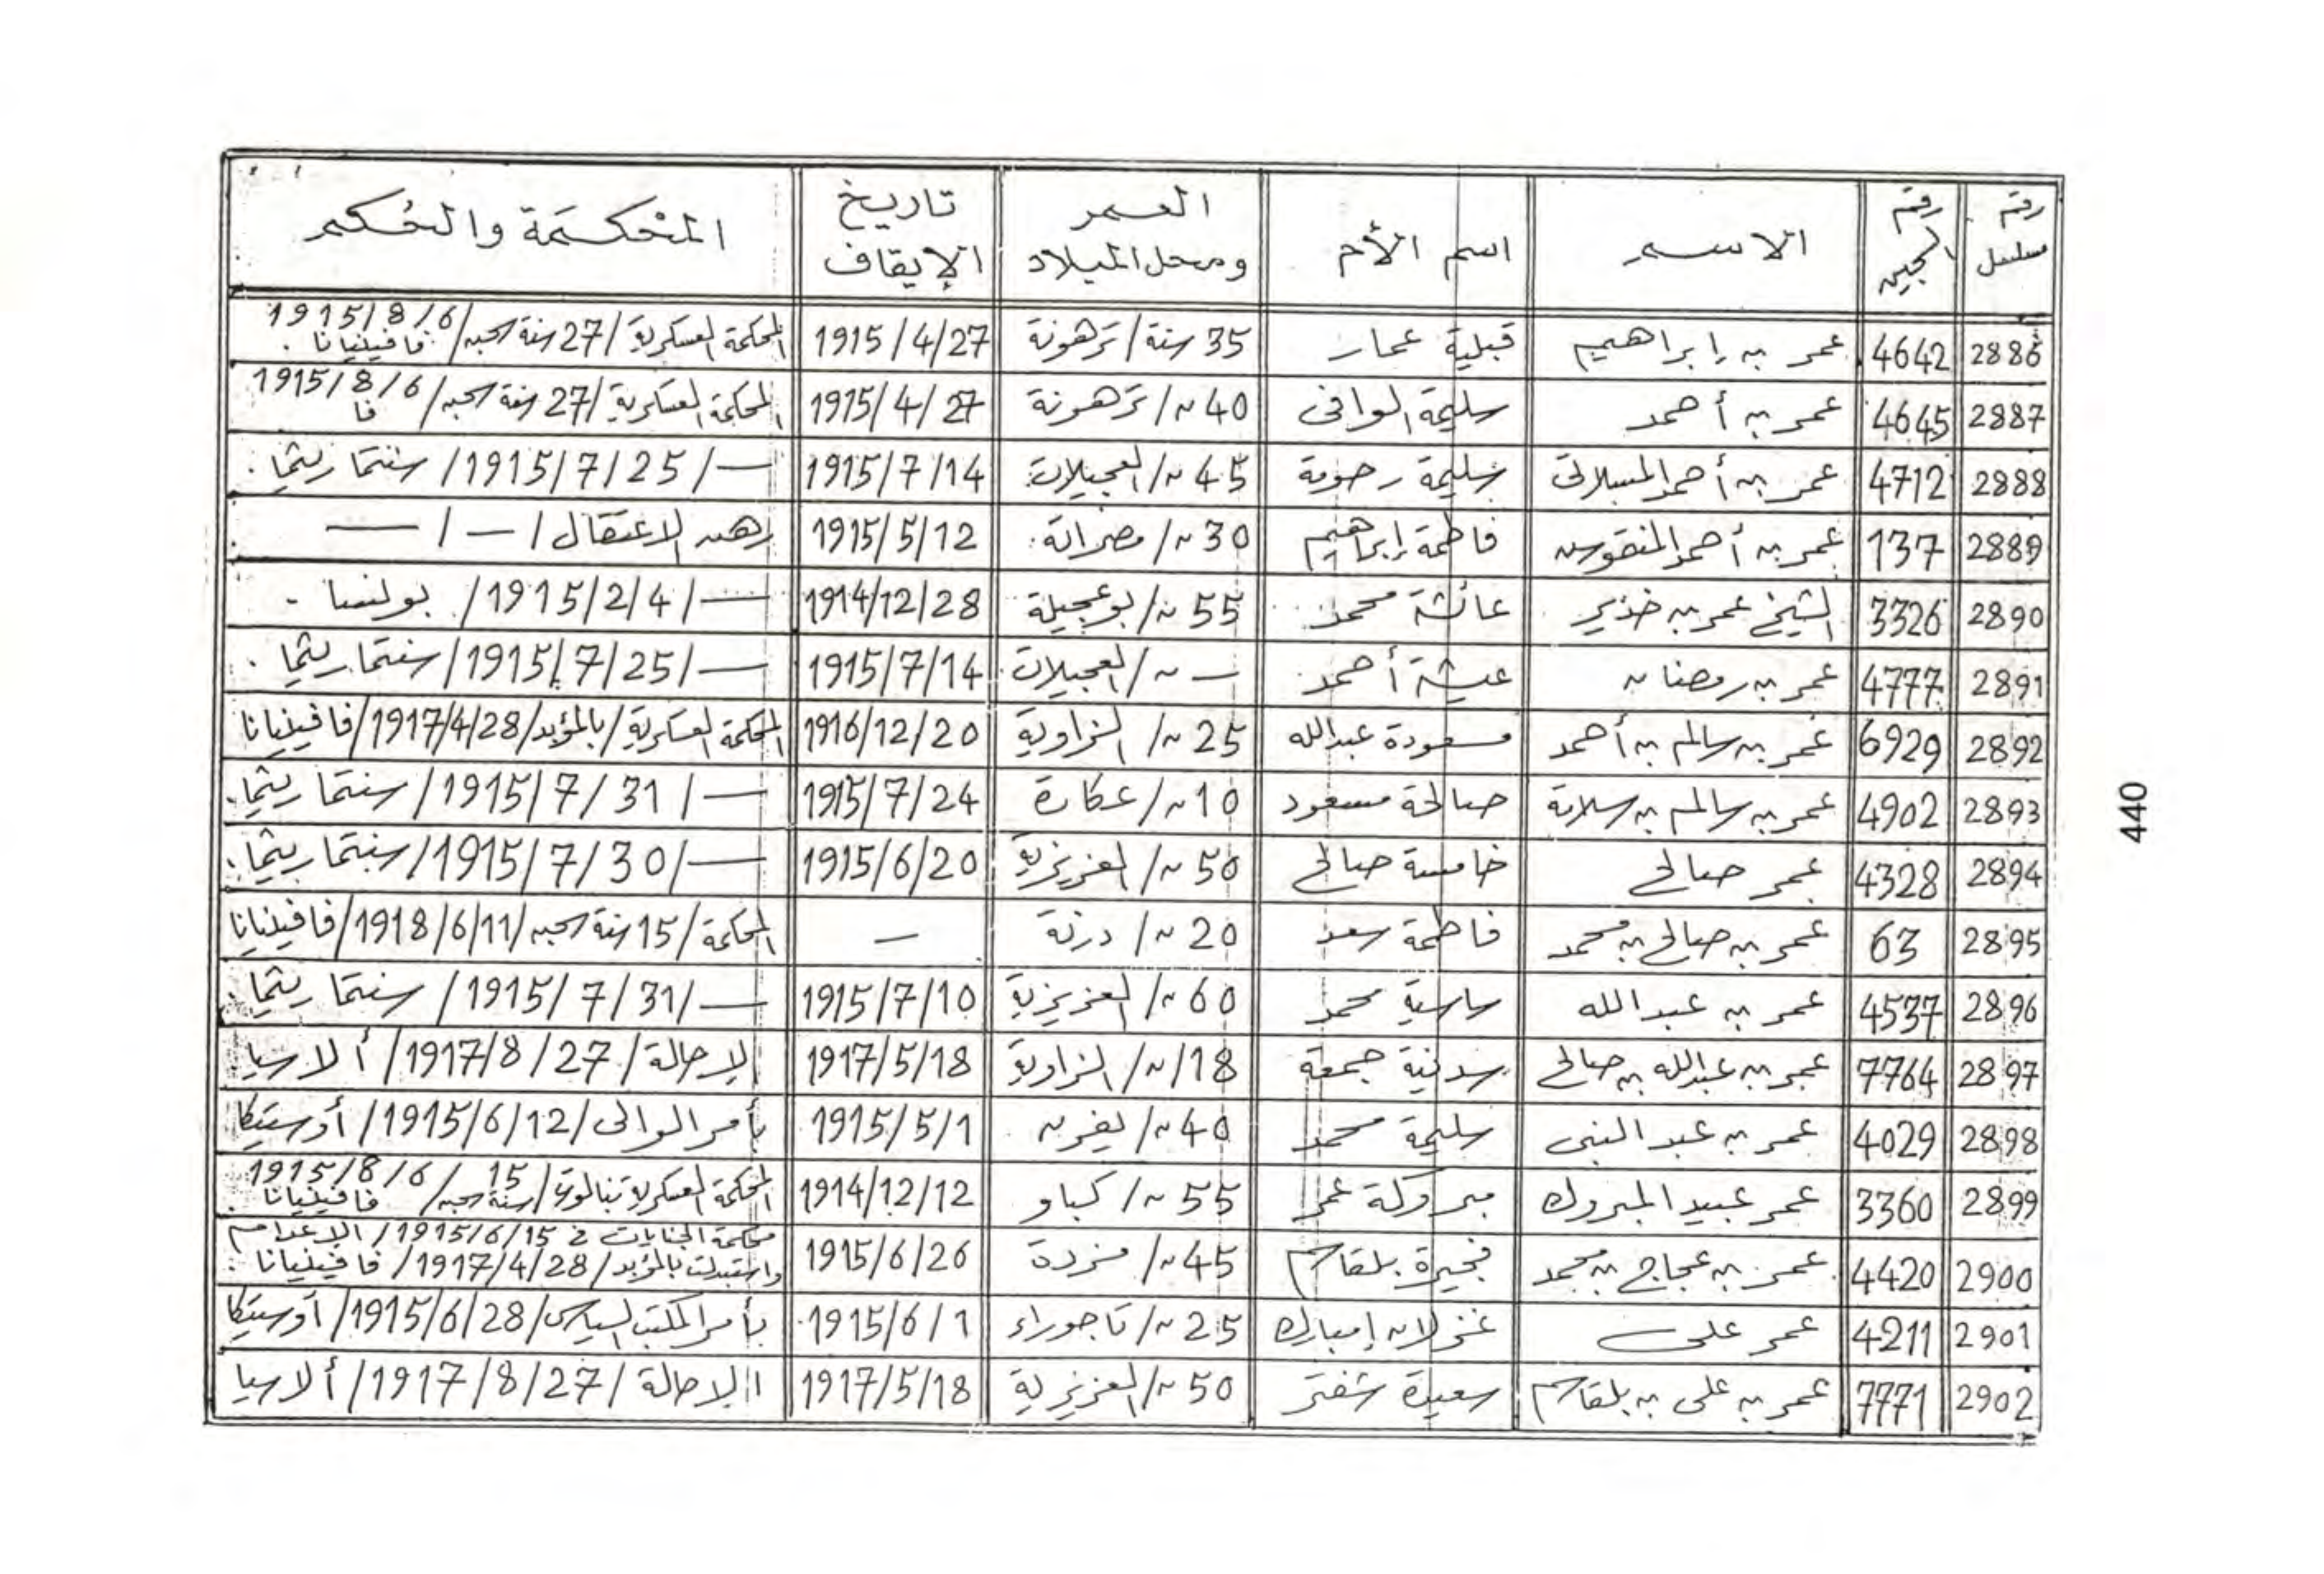 رقم مسلسل | رقم السجين | الاسم | اسم الأم | العمر ومحل الميلاد | تاريخ الإيقاف | المحكمة والحكم
2886 | 4642 | عمر بن إبراهيم | قبلية عمار | 35 سنة / ترهونة | 1915/4/27 | المحكمة العسكرية / 27 سنة سجن / 1915/8/6 فافينيانا .
2887 | 4645 | عمر بن أحمد | سليمة الوافى | 40 ~ / ترهونة | 1915/4/27 | المحكمة العسكرية / 27 سنة سجن / 1915/8/6 فا
2888 | 4712 | عمر بن أحمد المسلاتى | سليمة رحومة | 45 ~ / العجيلات | 1915/7/14 | — / 1915/7/25 / سنتماريثما .
2889 | 137 | عمر بن أحمد المنقوس | فاطمة إبراهيم | 30 ~ / مصراتة . | 1915/5/12 | رهن الاعتقال / — / —
2890 | 3326 | الشيخ عمر بن خذير | عائشة محمد | 55 ~ / بوعجيلة | 1914/12/28 | — / 1915/2/4 / بولنسا .
2891 | 4777 | عمر بن رمضان | عيشة أحمد | — ~ / العجيلات | 1915/7/14 | — / 1915/7/25 / سنتماريثما .
2892 | 6929 | عمر بن سالم بن أحمد | مسعودة عبدالله | 25 ~ / الزاوية | 1916/12/20 | المحكمة العسكرية / بالمؤبد / 1917/4/28 / فافينيانا
2893 | 4902 | عمر بن سالم بن سلامة | صالحة مسعود | 10 ~ / عكارة | 1915/7/24 | — / 1915/7/31 / سنتماريثما .
2894 | 4328 | عمر صالح | خامسة صالح | 50 ~ / العزيزية | 1915/6/20 | — / 1915/7/30 / سنتماريثما .
2895 | 63 | عمر بن صالح بن محمد | فاطمة سعد | 20 ~ / درنة | — | المحكمة / 15 سنة سجن / 1918/6/11 / فافينيانا
2896 | 4537 | عمر بن عبدالله | ساسية محمد | 60 ~ / العزيزية | 1915/7/10 | — / 1915/7/31 / سنتماريثما .
2897 | 7764 | عمر بن عبدالله بن صالح | سدنية جمعة | 18 / ~ / الزاوية | 1917/5/18 | الإحالة / 1917/8/27 / ألاسيا
2898 | 4029 | عمر بن عبد النبى | سليمة محمد | 40 ~ / يفرن . | 1915/5/1 | بأمر الوالى / 1915/6/12 / أوستيكا
2899 | 3360 | عمر عبيد المبروك | مبروكة عمر | 55 ~ / كباو | 1914/12/12 | المحكمة العسكرية بنالوت / 15 سنة سجن / 1915/8/6 فافينيانا .
2900 | 4420 | عمر بن عجاج بن محمد | فجرة بلقاسم | 45 ~ / مزدة | 1915/6/26 | محكمة الجنايات فى 1915/6/15 / الإعدام واستبدلت بالمؤبد / 1917/4/28 / فافينيانا .
2901 | 4211 | عمر على | غزلان إمبارك | 25 ~ / تاجوراء | 1915/6/1 | بأمر المكتب السياسى / 1915/6/28 / أوستيكا
2902 | 7771 | عمر بن على بن بلقاسم | سعيدة شفتر | 50 ~ / العزيزية | 1917/5/18 | الإحالة / 1917/8/27 / ألاسيا
440